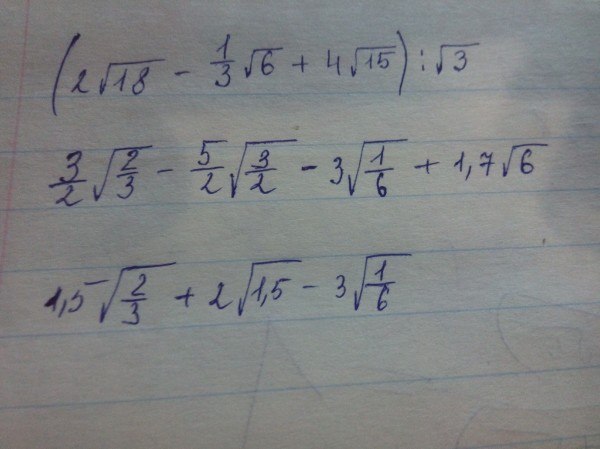 (2√18 - 1/3√6 + 4√15) : √3
3/2√(2/3) - 5/2√(3/2) - 3√(1/6) + 1,7√6
1,5√(2/3) + 2√1,5 - 3√(1/6)